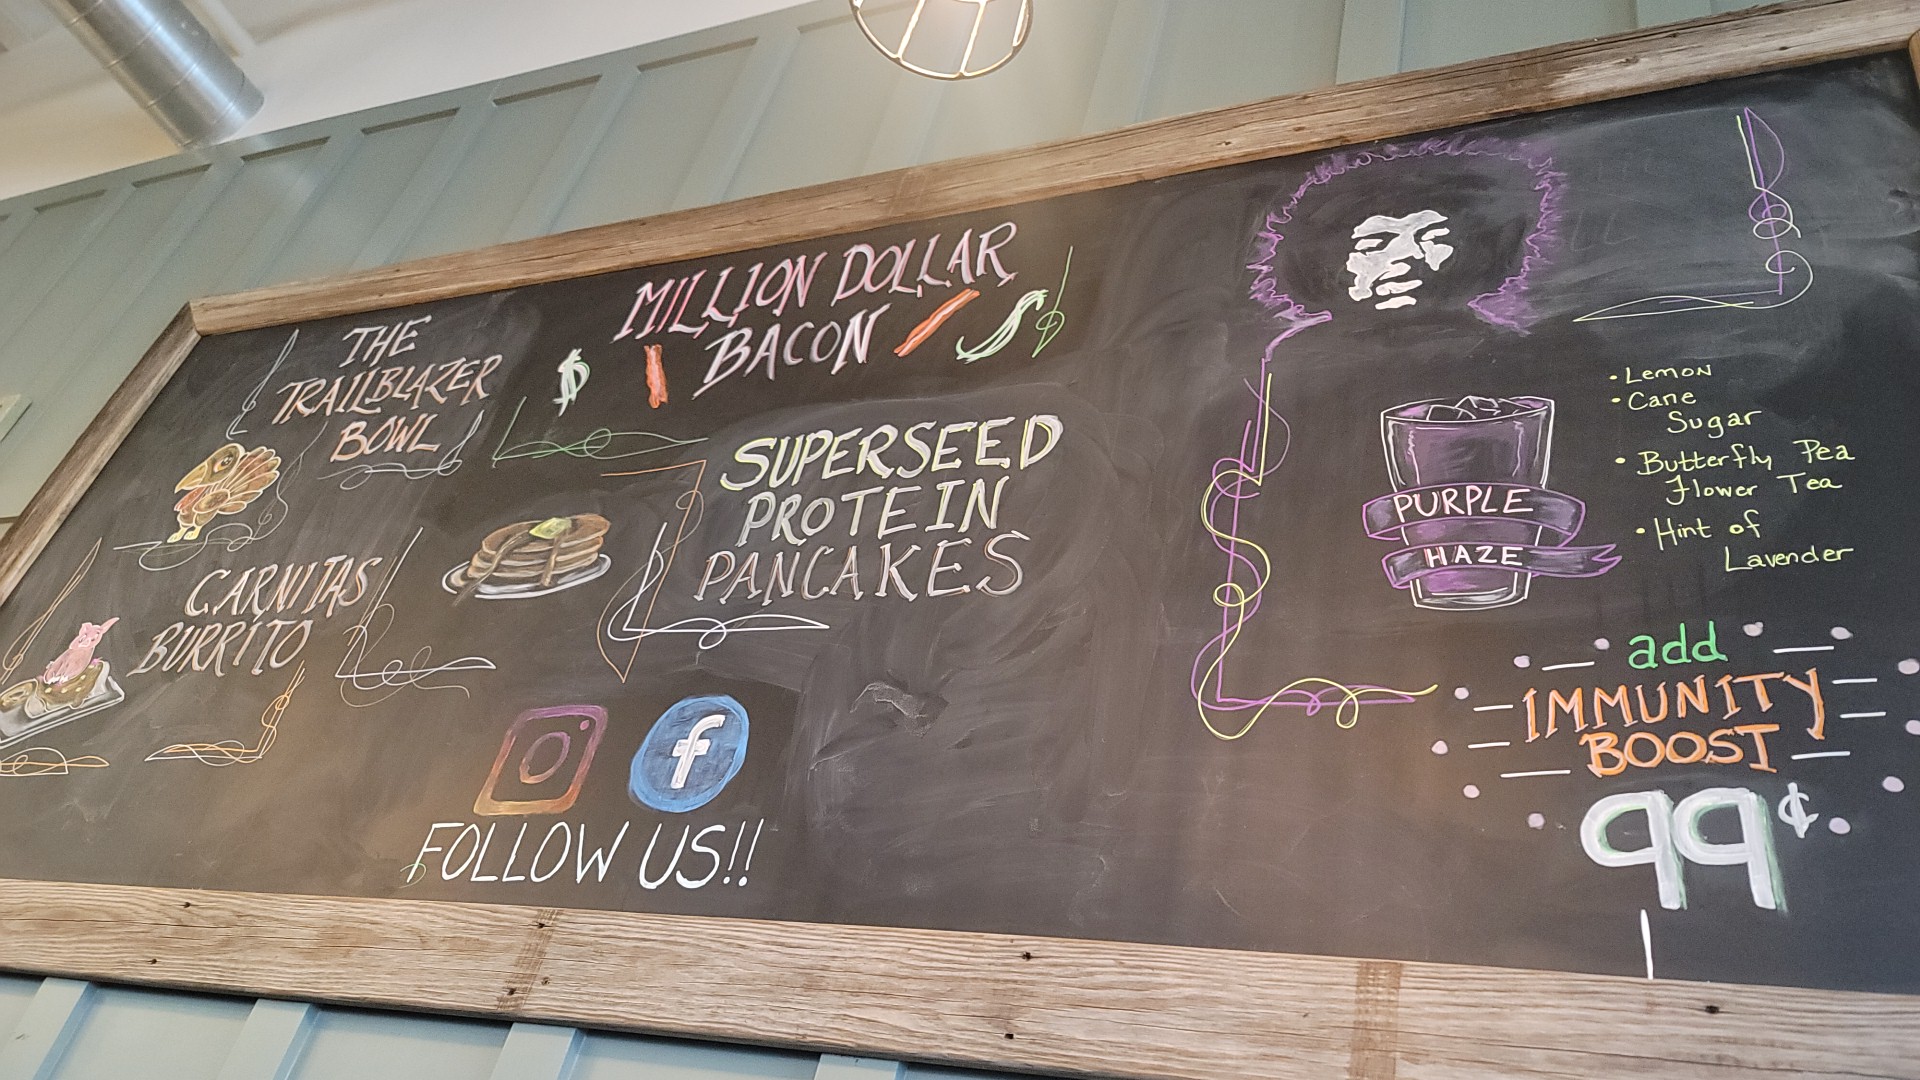 THE
TRAILBLAZER
BOWL
MILLION DOLLAR
$ BACON
SUPERSEED
PROTEIN
PANCAKES
CARNITAS
BURRITO
f
FOLLOW US!!
PURPLE
HAZE
• Lemon
• Cane
Sugar
• Butterfly Pea
Flower Tea
• Hint of
Lavender
add
IMMUNITY
BOOST
99¢